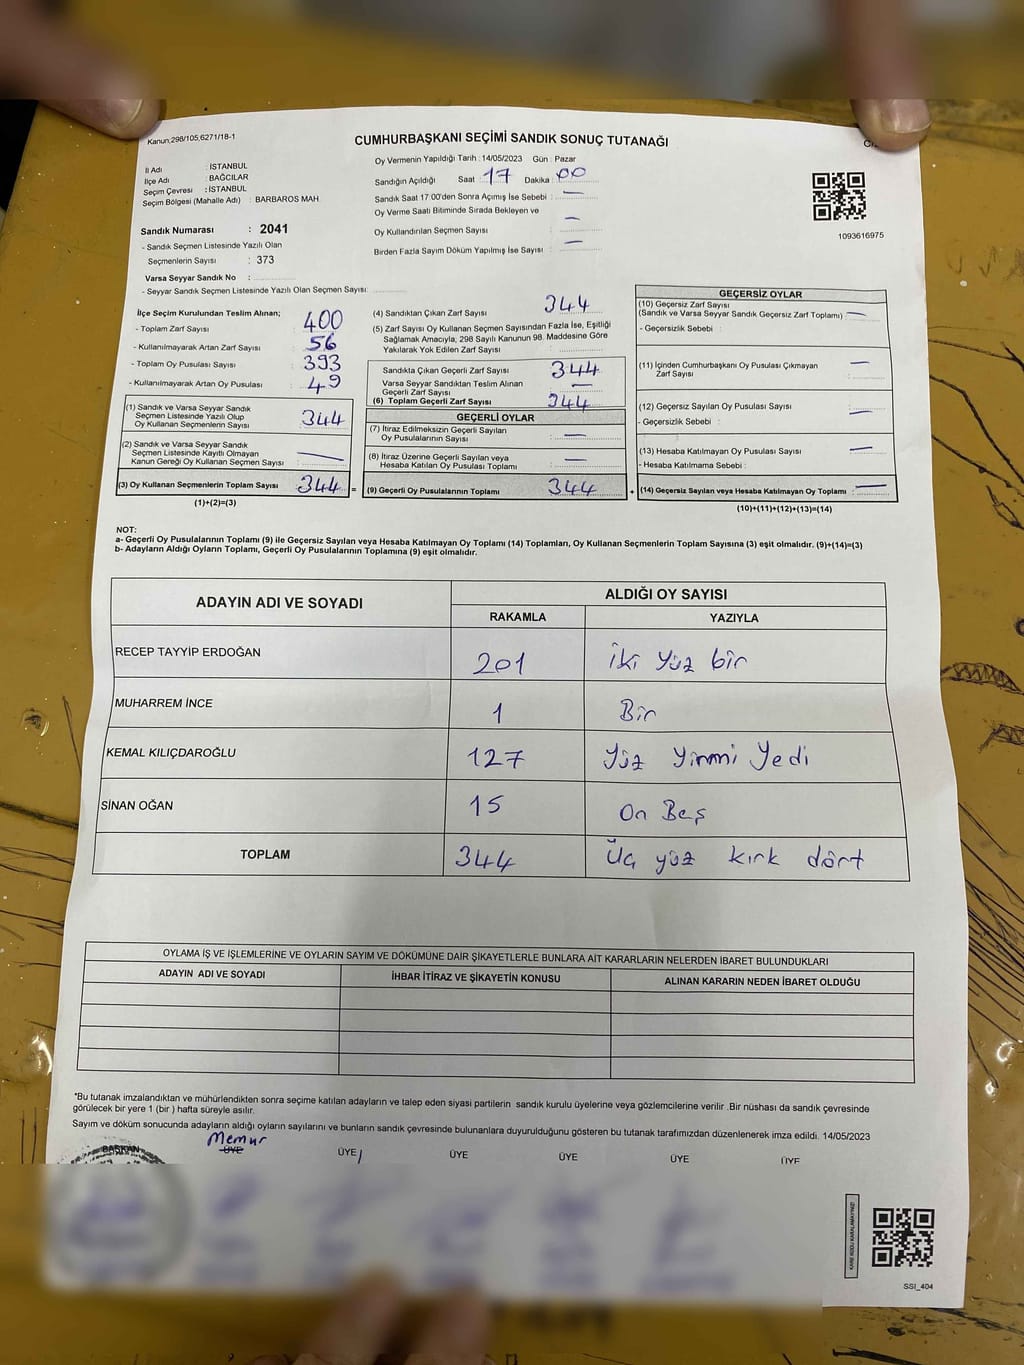 Kanun;298/105,6271/18-1
CUMHURBAŞKANI SEÇİMİ SANDIK SONUÇ TUTANAĞI
İl Adı : İSTANBUL
İlçe Adı : BAĞCILAR
Seçim Çevresi : İSTANBUL
Seçim Bölgesi (Mahalle Adı) : BARBAROS MAH.
Sandık Numarası : 2041
- Sandık Seçmen Listesinde Yazılı Olan
Seçmenlerin Sayısı : 373
Varsa Seyyar Sandık No :
- Seyyar Sandık Seçmen Listesinde Yazılı Olan Seçmen Sayısı:
Oy Vermenin Yapıldığı Tarih : 14/05/2023 Gün : Pazar
Sandığın Açıldığı Saat : 17 Dakika : 00
Sandık Saat 17:00'den Sonra Açımış İse Sebebi : —
Oy Verme Saati Bitiminde Sırada Bekleyen ve
Oy Kullandırılan Seçmen Sayısı : —
Birden Fazla Sayım Döküm Yapılmış İse Sayısı : —
1093616975
İlçe Seçim Kurulundan Teslim Alınan;
- Toplam Zarf Sayısı : 400
- Kullanılmayarak Artan Zarf Sayısı : 56
- Toplam Oy Pusulası Sayısı : 393
- Kullanılmayarak Artan Oy Pusulası : 49
(1) Sandık ve Varsa Seyyar Sandık
Seçmen Listesinde Yazılı Olup
Oy Kullanan Seçmenlerin Sayısı : 344
(2) Sandık ve Varsa Seyyar Sandık
Seçmen Listesinde Kayıtlı Olmayan
Kanun Gereği Oy Kullanan Seçmen Sayısı : —
(3) Oy Kullanan Seçmenlerin Toplam Sayısı : 344 =
(1)+(2)=(3)
(4) Sandıktan Çıkan Zarf Sayısı : 344
(5) Zarf Sayısı Oy Kullanan Seçmen Sayısından Fazla İse, Eşitliği
Sağlamak Amacıyla; 298 Sayılı Kanunun 98. Maddesine Göre
Yakılarak Yok Edilen Zarf Sayısı :
Sandıkta Çıkan Geçerli Zarf Sayısı : 344
Varsa Seyyar Sandıktan Teslim Alınan
Geçerli Zarf Sayısı : —
(6) Toplam Geçerli Zarf Sayısı : 344
GEÇERLİ OYLAR
(7) İtiraz Edilmeksizin Geçerli Sayılan
Oy Pusulalarının Sayısı : —
(8) İtiraz Üzerine Geçerli Sayılan veya
Hesaba Katılan Oy Pusulası Toplamı : —
(9) Geçerli Oy Pusulalarının Toplamı : 344 +
GEÇERSİZ OYLAR
(10) Geçersiz Zarf Sayısı
(Sandık ve Varsa Seyyar Sandık Geçersiz Zarf Toplamı) : —
- Geçersizlik Sebebi :
(11) İçinden Cumhurbaşkanı Oy Pusulası Çıkmayan
Zarf Sayısı : —
(12) Geçersiz Sayılan Oy Pusulası Sayısı : —
- Geçersizlik Sebebi :
(13) Hesaba Katılmayan Oy Pusulası Sayısı : —
- Hesaba Katılmama Sebebi :
(14) Geçersiz Sayılan veya Hesaba Katılmayan Oy Toplamı : —
(10)+(11)+(12)+(13)=(14)
NOT:
a- Geçerli Oy Pusulalarının Toplamı (9) ile Geçersiz Sayılan veya Hesaba Katılmayan Oy Toplamı (14) Toplamları, Oy Kullanan Seçmenlerin Toplam Sayısına (3) eşit olmalıdır. (9)+(14)=(3)
b- Adayların Aldığı Oyların Toplamı, Geçerli Oy Pusulalarının Toplamına (9) eşit olmalıdır.
ADAYIN ADI VE SOYADI ALDIĞI OY SAYISI
RAKAMLA YAZIYLA
RECEP TAYYİP ERDOĞAN 201 İki yüz bir
MUHARREM İNCE 1 Bir
KEMAL KILIÇDAROĞLU 127 Yüz Yirmi Yedi
SİNAN OĞAN 15 On Beş
TOPLAM 344 Üç yüz kırk dört
OYLAMA İŞ VE İŞLEMLERİNE VE OYLARIN SAYIM VE DÖKÜMÜNE DAİR ŞİKAYETLERLE BUNLARA AİT KARARLARIN NELERDEN İBARET BULUNDUKLARI
ADAYIN ADI VE SOYADI İHBAR İTİRAZ VE ŞİKAYETİN KONUSU ALINAN KARARIN NEDEN İBARET OLDUĞU
*Bu tutanak imzalandıktan ve mühürlendikten sonra seçime katılan adayların ve talep eden siyasi partilerin sandık kurulu üyelerine veya gözlemcilerine verilir .Bir nüshası da sandık çevresinde
görülecek bir yere 1 (bir ) hafta süreyle asılır.
Sayım ve döküm sonucunda adayların aldığı oyların sayılarını ve bunların sandık çevresinde bulunanlara duyurulduğunu gösteren bu tutanak tarafımızdan düzenlenerek imza edildi. 14/05/2023
Memur
BAŞKAN ÜYE ÜYE ÜYE ÜYE ÜYE ÜYE
KARE KODU KARALAMAYINIZ!
SSI_404